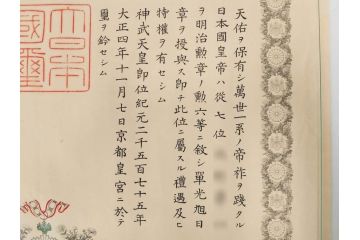 天佑ヲ保有シ萬世一系ノ帝祚ヲ踐タル
日本國皇帝ハ從七位
ヲ明治勲章ノ勲六等ニ敍シ單光旭日
章ヲ授與ス即チ此位ニ屬スル禮遇及ヒ
特權ヲ有セシム
神武天皇即位紀元二千五百七十五年
大正四年十一月七日京都皇宮ニ於テ
璽ヲ鈐セシム
大日本
國璽